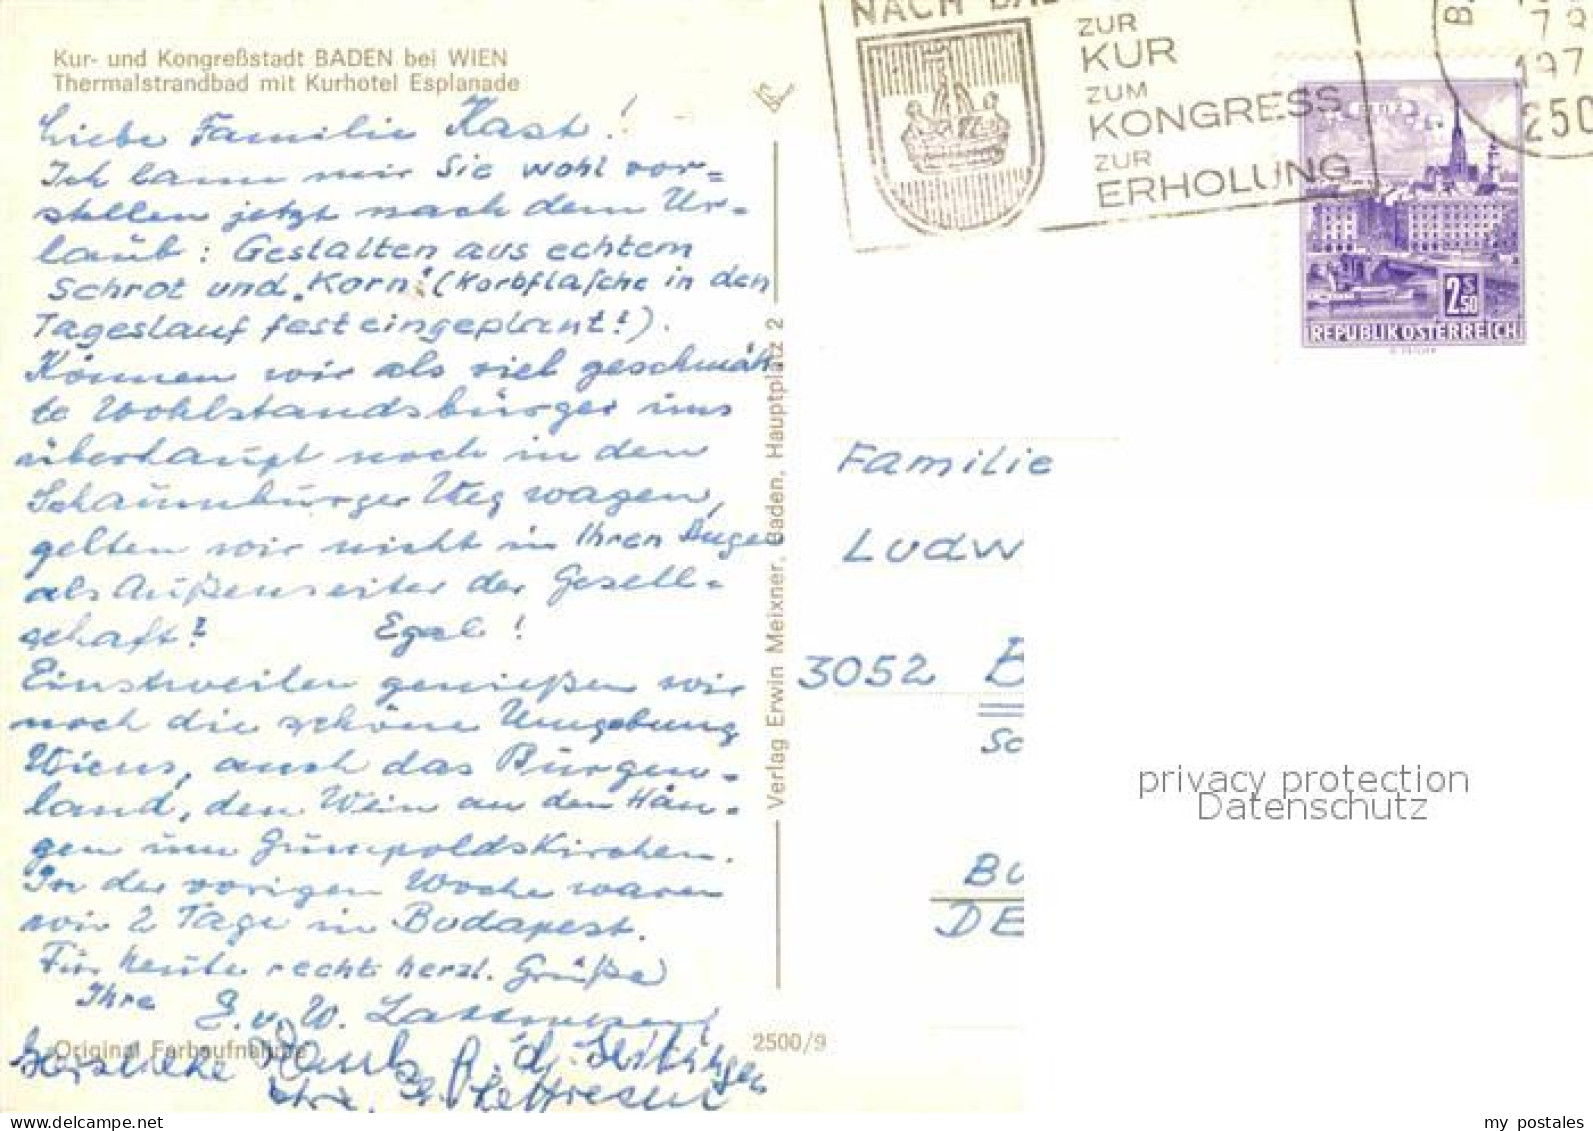 Kur- und Kongreßstadt BADEN bei WIEN
Thermalstrandbad mit Kurhotel Esplanade
Liebe Familie Kast!
Ich kann mir Sie wohl vor=
stellen jetzt nach dem Ur=
laub: Gestalten aus echtem
Schrot und "Korn" (Korbflasche in den
Tageslauf fest eingeplant!).
Können wir als viel geschmäh
te Wohlstandsbürger uns
überhaupt noch in den
Schaumburger Weg wagen,
gelten wir nicht in Ihren Augen
als Außenseiter der Gesell=
schaft? Egal!
Einstweilen genießen wir
noch die schöne Umgebung
Wiens, auch das Burgen=
land, den Wein an den Hän=
gen um Gumpoldskirchen.
In der vorigen Woche waren
wir 2 Tage in Budapest.
Für heute recht herzl. Grüße
Ihre
E. u. W.
Original Farbaufnahme
Herzlichen Dank f. d.
2500/9
Verlag Erwin Meixner, Baden, Hauptplatz 2
NACH
ZUR
KUR
ZUM
KONGRESS
ZUR
ERHOLUNG
197
250
2 S 50
REPUBLIK ÖSTERREICH
Familie
Ludw
3052 B
Sc
BU
DE
privacy protection
Datenschutz
my_postales